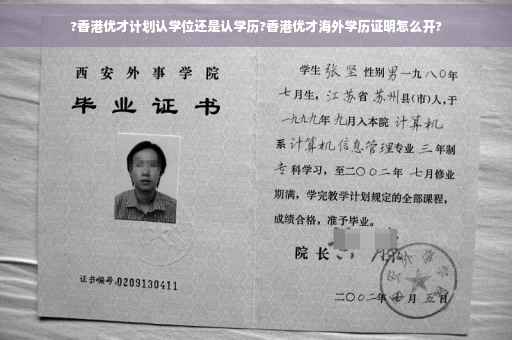 ?香港优才计划认学位还是认学历?香港优才海外学历证明怎么开?
西安外事学院
毕业证书
证书编号:0209130411
学生张坚性别男一九八〇年
七月生,江苏省苏州县(市)人,于
一九九九年九月入本院计算机
系计算机信息管理专业三年制
专科学习,至二〇〇二年七月修业
期满,学完教学计划规定的全部课程,
成绩合格,准予毕业。
院长
二〇〇二年 月五日